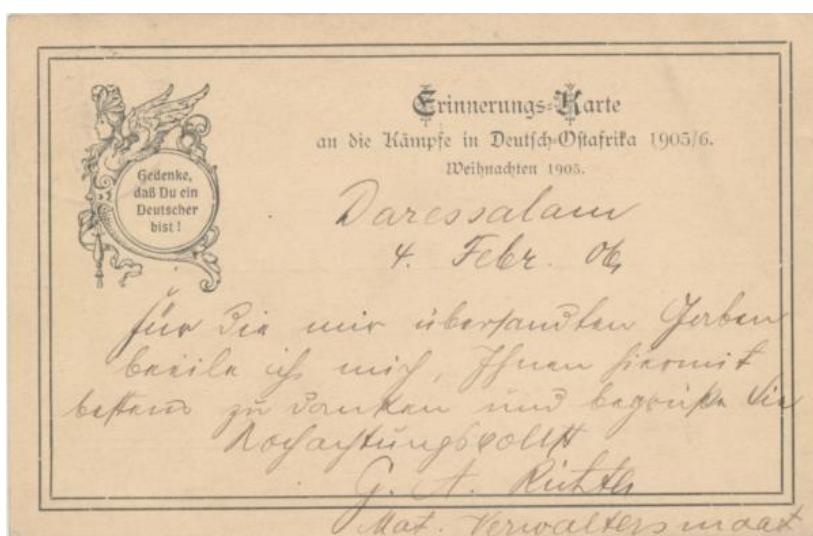 Gedenke,
daß Du ein
Deutscher
bist!
Erinnerungs-Karte
an die Kämpfe in Deutsch-Ostafrika 1905/6.
Weihnachten 1905.
Daressalam
4. Febr. 06
Für die mir übersandten Gaben
beeile ich mich, Ihnen hiermit
bestens zu danken und begrüße Sie
Hochachtungsvollst
G. A. Richter
Mat. Verwaltersmaat